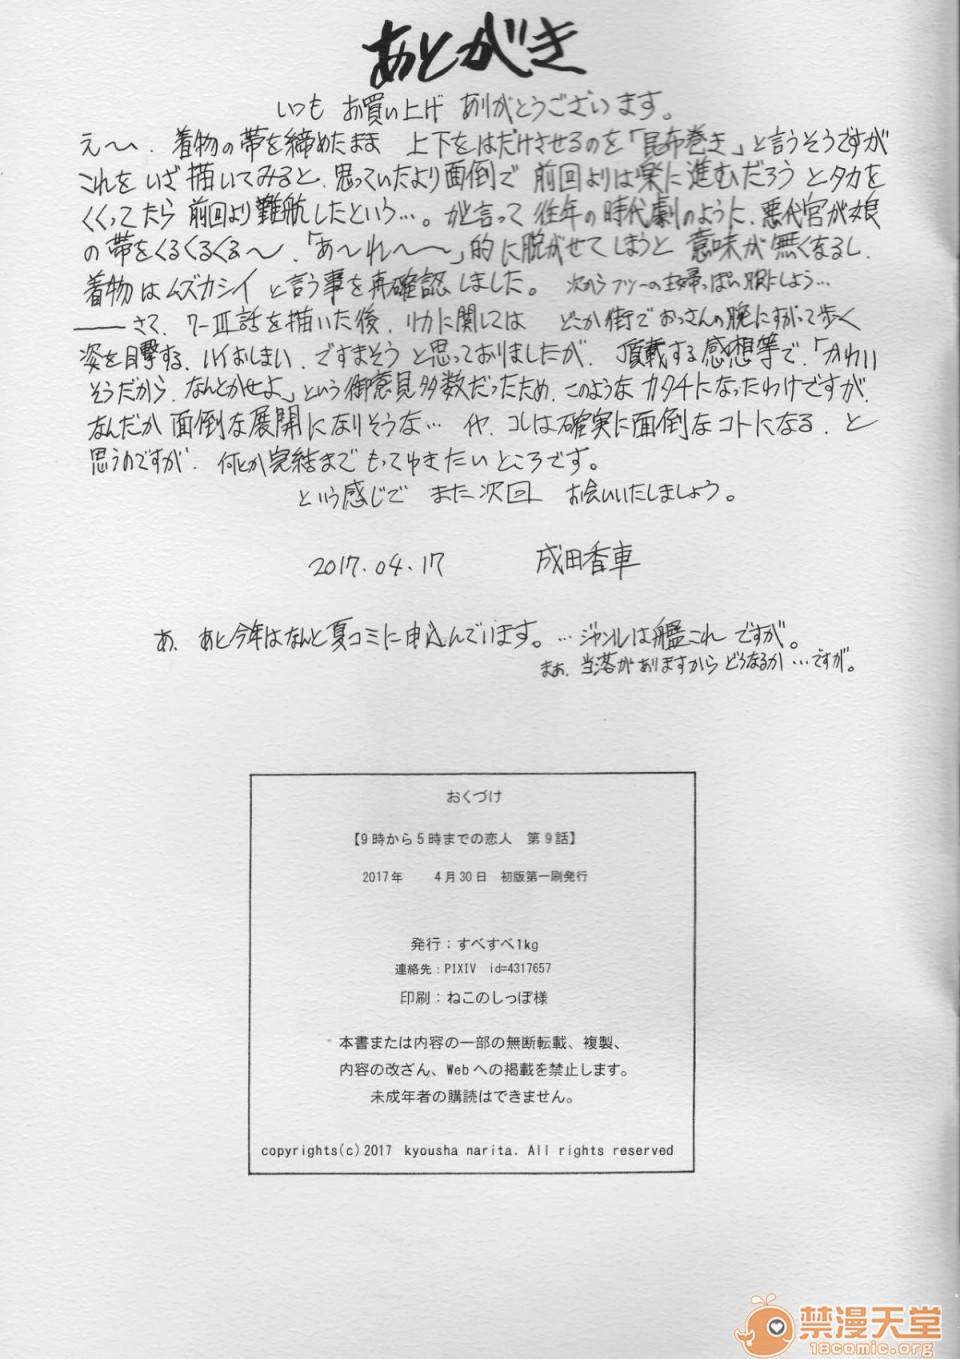 あとがき
いつも お買い上げ ありがとうございます。
え〜、着物の帯を締めたまま 上下をはだけさせるのを「昆布巻き」と言うそうですが
これを いざ 描いてみると、思っていたより面倒で 前回よりは楽に進むだろう とタカを
くくってたら 前回より難航したという…。が言って 往年の時代劇のように、悪代官が娘
の帯をくるくるくる〜、「あ〜れ〜〜」的に脱がせてしまうと 意味が無くなるし、
着物はムズカシイ と言う事を再確認しました。 次からフツーの主婦っぽい服にしよう…
――さて、7-Ⅲ話を描いた後、リカに関しては どこか街でおっさんの腕にすがって歩く
姿を目撃する、ハイおしまい、ですまそう と思っておりましたが、頂載する感想等で、「かわい
そうだから、なんとかせよ」という御意見多数だったため、このような カタチになったわけですが、
なんだか 面倒な展開になりそうな… イヤ、コレは確実に面倒なコトになる、と
思うのですが、何とか完結まで もってゆきたい ところです。
という感じで また次回 お会いいたしましょう。
2017.04.17 成田香車
あ、あと今年はなんと夏コミに申込んでいます。…ジャンルは艦これ ですが。
まぁ、当落がありますから どうなるか…ですが。
おくづけ
【9時から5時までの恋人 第9話】
2017年 4月30日 初版第一刷発行
発行：すべすべ1kg
連絡先：PIXIV id=4317657
印刷：ねこのしっぽ様
本書または内容の一部の無断転載、複製、
内容の改ざん、Webへの掲載を禁止します。
未成年者の購読はできません。
copyrights(c)2017 kyousha narita. All rights reserved
禁漫天堂
18comic.org